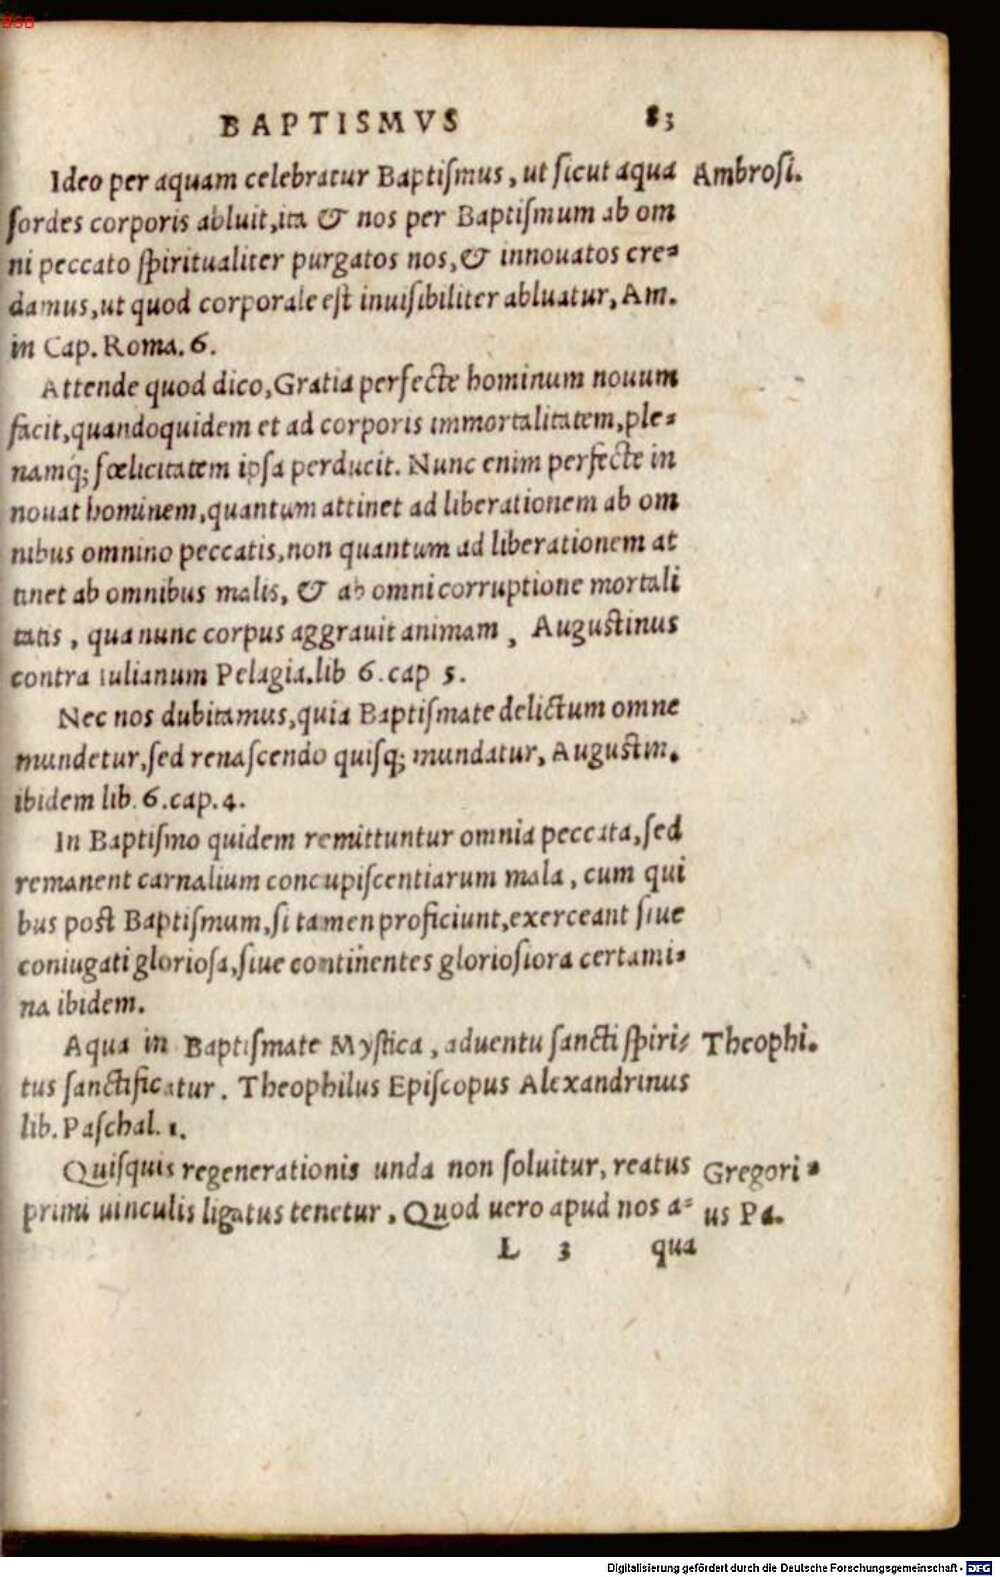 BSB
BAPTISMVS 83
Ideo per aquam celebratur Baptiſmus, ut ſicut aqua Ambroſi.
ſordes corporis abluit, ita & nos per Baptiſmum ab om
ni peccato ſpiritualiter purgatos nos, & innouatos cre=
damus, ut quod corporale eſt inuiſibiliter abluatur, Am.
in Cap. Roma. 6.
Attende quod dico, Gratia perfecte hominum nouum
facit, quandoquidem et ad corporis immortalitatem, ple=
namq; fœlicitatem ipſa perducit. Nunc enim perfecte in
nouat hominem, quantum attinet ad liberationem ab om
nibus omnino peccatis, non quantum ad liberationem at
tinet ab omnibus malis, & ab omni corruptione mortali
tatis, qua nunc corpus aggrauit animam, Auguſtinus
contra Iulianum Pelagia. lib 6. cap 5.
Nec nos dubitamus, quia Baptiſmate delictum omne
mundetur, ſed renaſcendo quiſq; mundatur, Auguſtin.
ibidem lib. 6. cap. 4.
In Baptiſmo quidem remittuntur omnia peccata, ſed
remanent carnalium concupiſcentiarum mala, cum qui
bus poſt Baptiſmum, ſi tamen proficiunt, exerceant ſiue
coniugati glorioſa, ſiue continentes glorioſiora certami=
na ibidem.
Aqua in Baptiſmate Myſtica, aduentu ſancti ſpiri= Theophi.
tus ſanctificatur. Theophilus Epiſcopus Alexandrinus
lib. Paſchal. 1.
Quiſquis regenerationis unda non ſoluitur, reatus Gregori=
primi uinculis ligatus tenetur. Quod uero apud nos a= us Pa.
L 3 qua
Digitalisierung gefördert durch die Deutsche Forschungsgemeinschaft - DFG